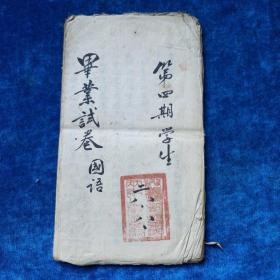 第四期学生
畢業試卷 國語